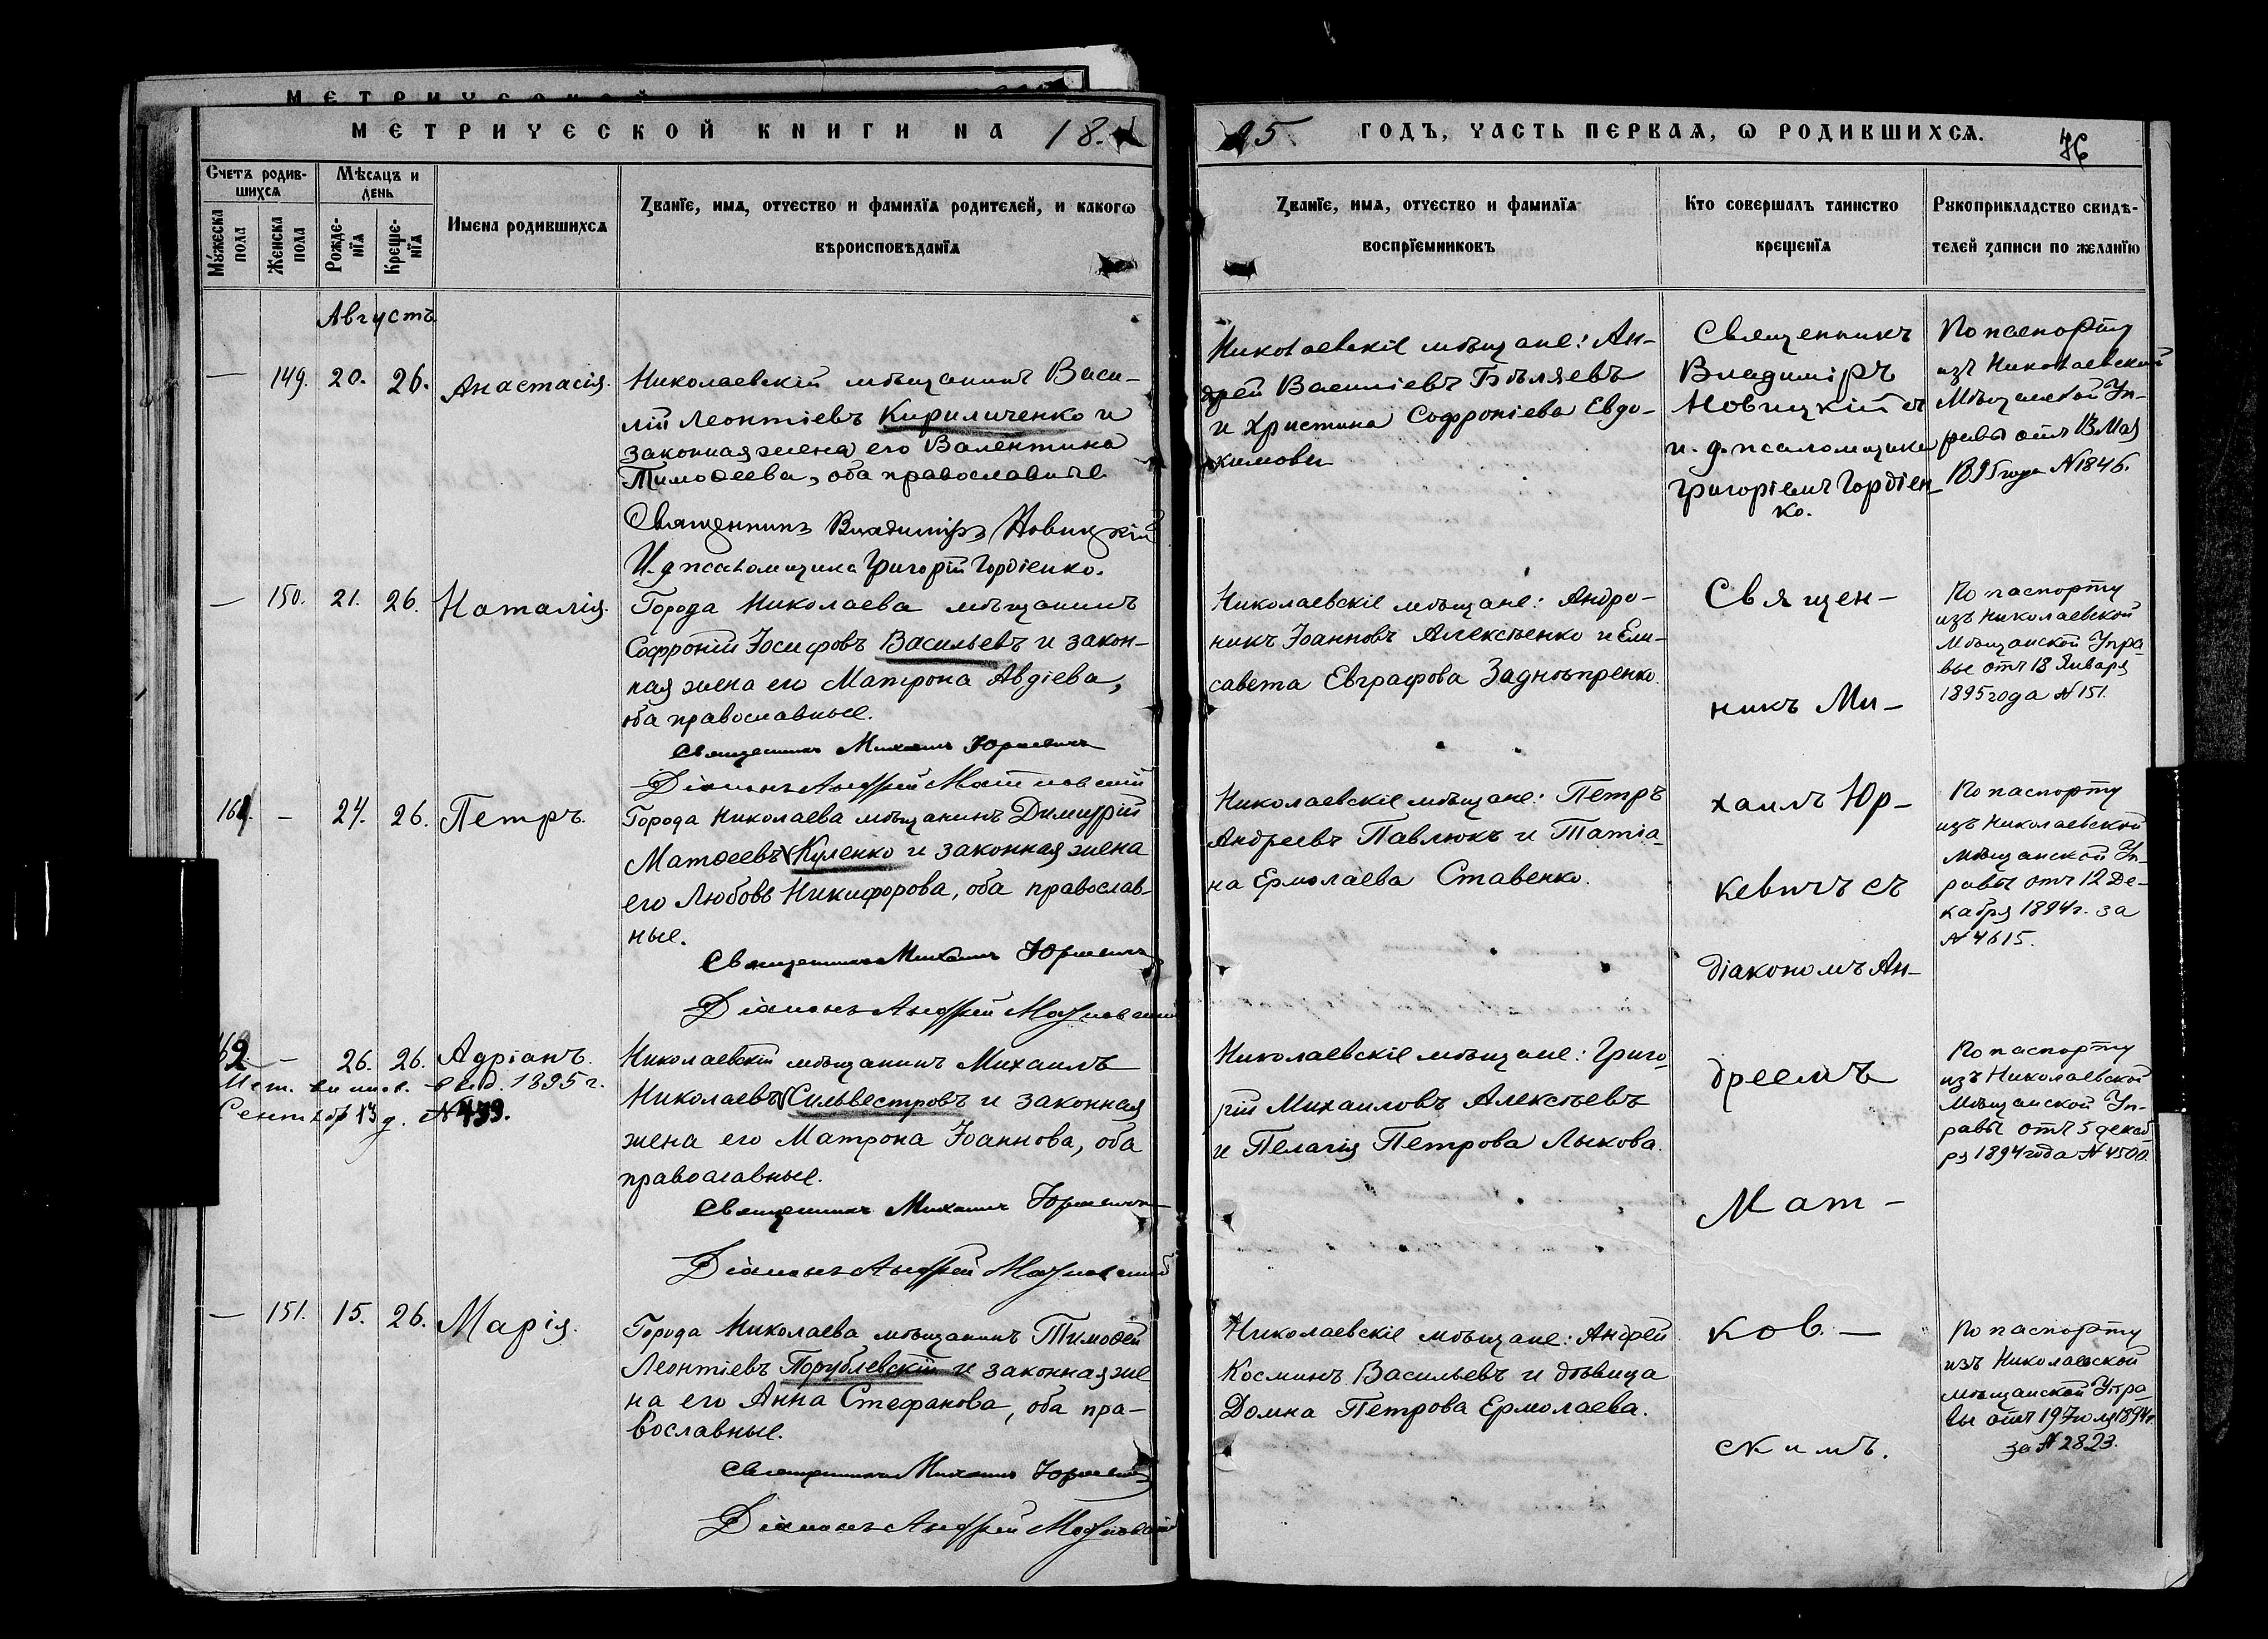 МЕТРИЧЕСКОЙ КНИГИ НА 18
95 ГОДЪ, ЧАСТЬ ПЕРВАЯ, Ѡ РОДИВШИХСЯ.
76
Счетъ родив-
шихся
Мѣсяцъ и
день
Мужеска
пола
Женска
пола
Рожде-
нїя
Креще-
нїя
Имена родившихся
Званїе, имя, отчество и фамилїя родителей, и какогѡ
вѣроисповѣданїя
Званїе, имя, отчество и фамилїя
воспрїемниковъ
Кто совершалъ таинство
крещенїя
Рукоприкладство свидѣ-
телей записи по желанїю
Августъ
— 149. 20. 26. Анастасія.
Николаевскій мѣщанинъ Васи-
лій Леонтіевъ Кириличенко и
законная жена его Валентина
Тимоѳеева, оба православные
Священникъ Владиміръ Новицкій
И. д. псаломщика Григорій Гордіенко.
Николаевскіе мѣщане: Ан-
дрей Василіевъ Бѣляевъ
и Христина Софроніева Евдо-
кимова
Священникъ
Владиміръ
Новицкій съ
и. д. псаломщика
Григоріемъ Гордіен-
ко.
По паспорту
изъ Николаевской
Мѣщанской Уп-
равы отъ 13 Мая
1895 года № 1846.
— 150. 21. 26. Наталія.
Города Николаева мѣщанинъ
Софроній Іосифовъ Васильевъ и закон-
ная жена его Матрона Авдіева,
оба православные.
Священникъ Михаилъ Юркевичъ
Діаконъ Андрей Матковскій
Николаевскіе мѣщане: Андро-
никъ Іоанновъ Алексѣенко и Ели-
савета Евграфова Заднѣпренко.
Священ-
никъ Ми-
По паспорту
изъ Николаевской
Мѣщанской Упра-
вы отъ 18 Января
1895 года № 151.
161. — 24. 26. Петръ.
Города Николаева мѣщанинъ Димитрій
Матѳеевъ Куленко и законная жена
его Любовь Никифорова, оба православ-
ные.
Священникъ Михаилъ Юркевичъ
Діаконъ Андрей Матковскій
Николаевскіе мѣщане: Петръ
Андреевъ Павлюкъ и Татіа-
на Ермолаева Ставенко.
хаилъ Юр-
кевичъ съ
діакономъ Ан-
По паспорту
изъ Николаевской
Мѣщанской Уп-
равы отъ 12 Де-
кабря 1894 г. за
№ 4615.
162. — 26. 26. Адріанъ.
Мет. выпис. выд. 1895 г.
Сентябр 13 д. № 459.
Николаевскій мѣщанинъ Михаилъ
Николаевъ Сильвестровъ и законная
жена его Матрона Іоаннова, оба
православные.
Священникъ Михаилъ Юркевичъ
Діаконъ Андрей Матковскій
Николаевскіе мѣщане: Григо-
рій Михаиловъ Алексѣевъ
и Пелагія Петрова Лыкова.
дреемъ
Мат-
По паспорту
изъ Николаевской
Мѣщанской Уп-
равы отъ 5 декаб-
ря 1894 года № 4500.
— 151. 15. 26. Марія.
Города Николаева мѣщанинъ Тимоѳей
Леонтіевъ Порублевскій и законная же
на его Анна Стефанова, оба пра-
вославные.
Священникъ Михаилъ Юркевичъ
Діаконъ Андрей Матковскій
Николаевскіе мѣщане: Андрей
Косминъ Васильевъ и дѣвица
Домна Петрова Ермолаева.
ков-
скимъ.
По паспорту
изъ Николаевской
мѣщанской Упра-
вы отъ 19 Іюля 1894 г.
за № 2823.